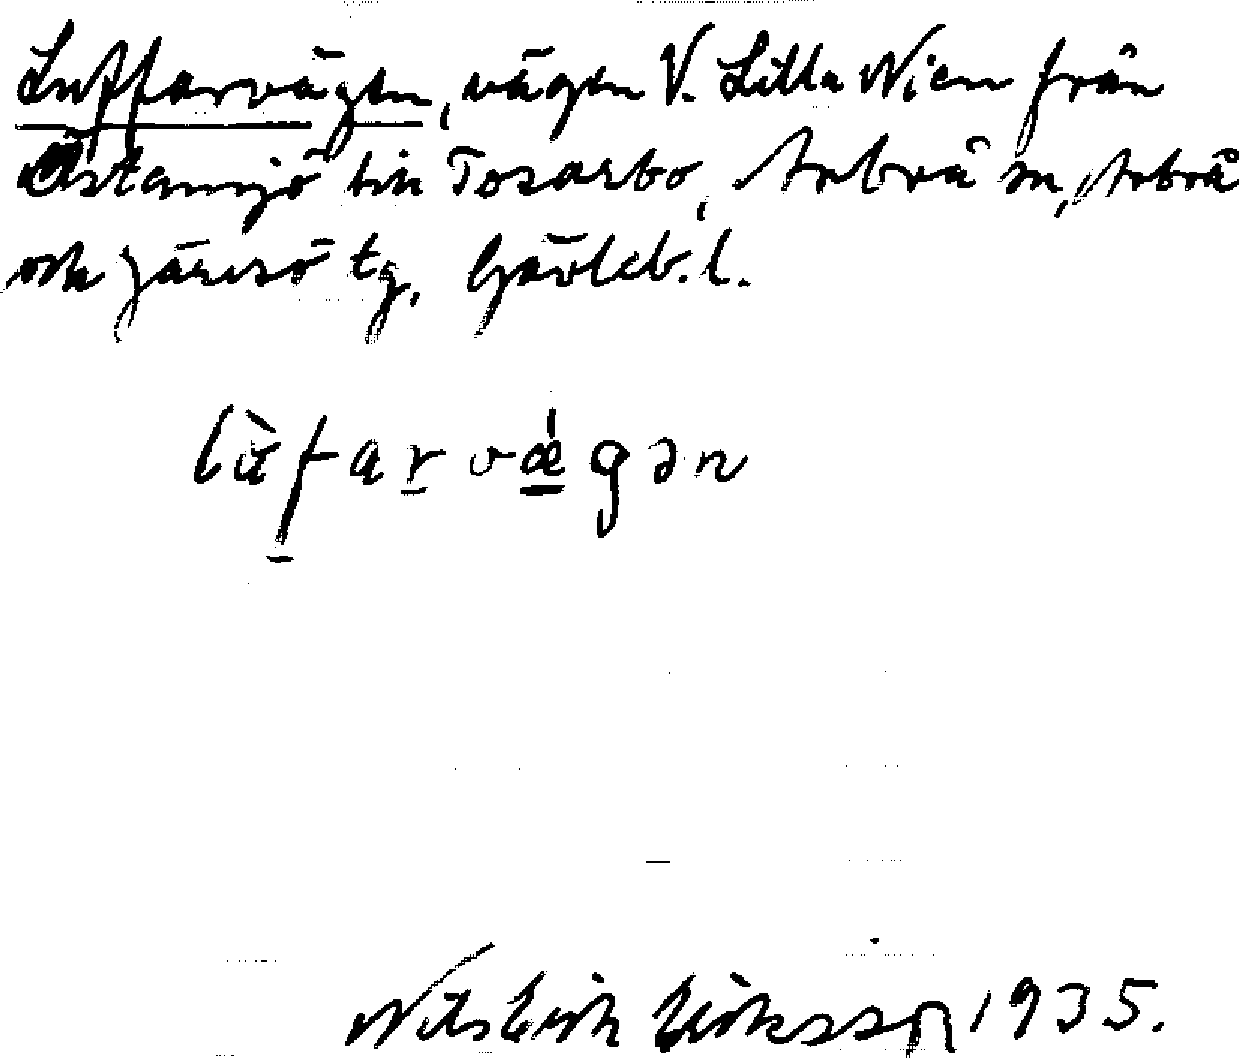 Luffarvägen, vägen V. Lilla Nien från
Östansjö till Tosarbo, Arbrå sn, Arbrå
och Järvsö tg, Gävleb. l.
lùfarvǽgən
Nils Erik Eriksson 1935.